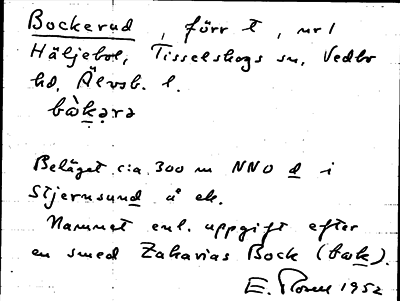 Bockerud, förr t, ur 1
Häljebol, Tisselskogs sn, Vedbo
hd, Älvsb. l.
bàkərə
Beläget c:a 300 m NNO d i
Stjernsund å ek.
Namnet enl. uppgift efter
en smed Zakarias Bock (bɷk).
E. 1952